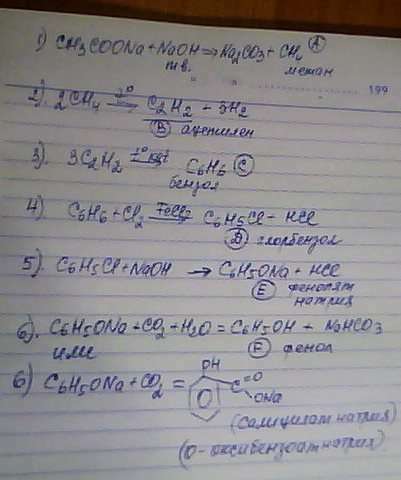 1) CH3COONa + NaOH → Na2CO3 + CH4 (A)
тв. метан
199
2). 2CH4 t° → C2H2 - 3H2
(B) ацетилен
3). 3C2H2 t° kat → C6H6 (C)
бензол
4) C6H6 + Cl2 → C6H5Cl - HCl
(D) хлорбензол
5). C6H5Cl + NaOH → C6H5ONa + HCl
(E) фенолят
натрия
6). C6H5ONa + CO2 + H2O = C6H5OH + NaHCO3
или (F) фенол
6) C6H5ONa + CO2 = OH C =O ONa
(салицилат натрия)
(о- оксибензоат натрия)